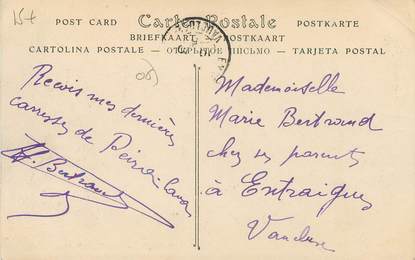 15+
POST CARD Carte Postale POSTKARTE
BRIEFKAART POSTKAART
CARTOLINA POSTALE — ОТКРЫТОЕ ПИСЬМО — TARJETA POSTAL
Reçois mes dernières
caresses de Peïra-Cava
H. Bertrand
Mademoiselle
Marie Bertrand
chez ses parents
à Entraigues
Vaucluse